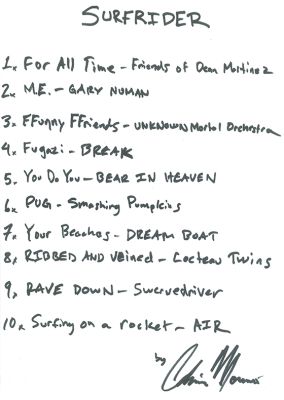 SURFRIDER
1. For All Time - Friends of Dean Martinez
2. M.E. - GARY NUMAN
3. FFunny FFriends - UNKNOWN Mortal Orchestra
4. Fugazi - BREAK
5. You Do You - BEAR IN HEAVEN
6. PUG - Smashing Pumpkins
7. Your Beaches - DREAM BOAT
8. RIBBED AND Veined - Cocteau Twins
9. RAVE DOWN - Swervedriver
10. Surfing on a rocket - AIR
by